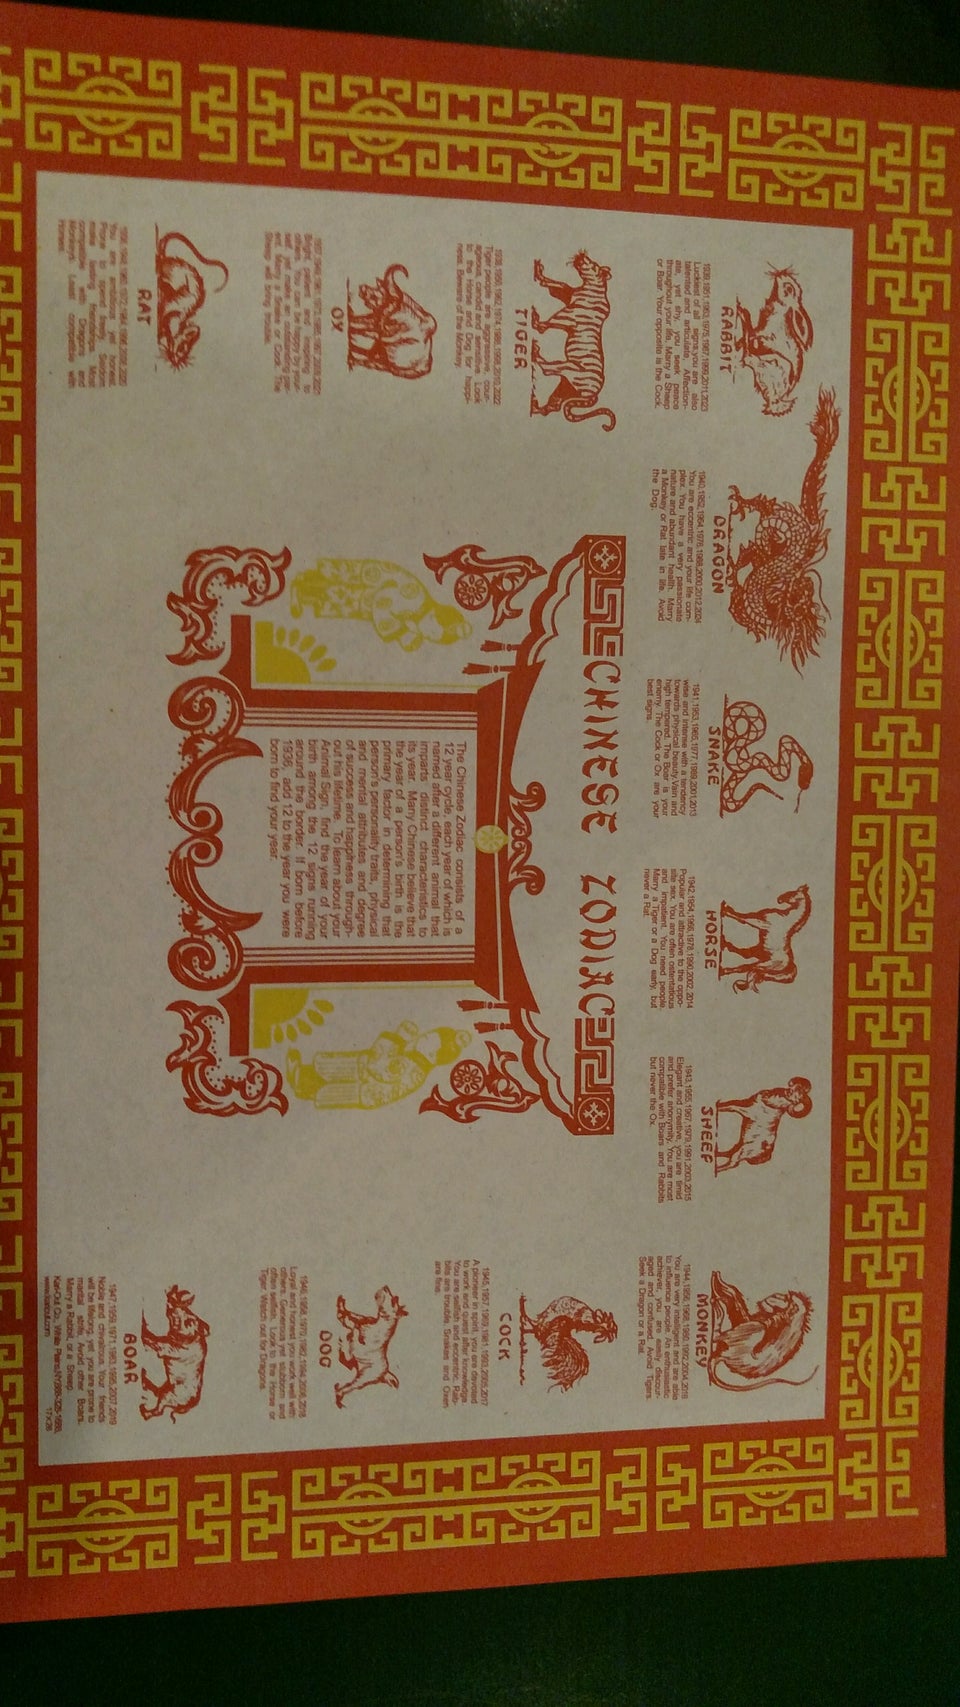 CHINESE ZODIAC
The Chinese Zodiac consists of a
12 year cycle, each year of which is
named after a different animal that
imparts distinct characteristics to
its year. Many Chinese believe that
the year of a person's birth is the
primary factor in determining that
person's personality traits, physical
and mental attributes and degree
of success and happiness through-
out his lifetime. To learn about your
Animal Sign, find the year of your
birth among the 12 signs running
around the border. If born before
1936, add 12 to the year you were
born to find your year.
RAT
You are ambitious yet honest.
Prone to spend freely. Seldom
make lasting friendships. Most
compatible with Dragons and
Monkeys. Least compatible with
Horses.
OX
Bright, patient and inspiring to
others. You can be happy by your-
self, yet make an outstanding par-
ent. Marry a Snake or Cock. The
Sheep will bring trouble.
TIGER
1938,1950,1962,1974,1986,1998,2010,2022
Tiger people are aggressive, cour-
ageous, candid and sensitive. Look
to the Horse and Dog for happi-
ness. Beware of the Monkey.
RABBIT
1939,1951,1963,1975,1987,1999,2011,2023
Luckiest of all signs, you are also
talented and articulate. Affection-
ate, yet shy, you seek peace
throughout your life. Marry a Sheep
or Boar. Your opposite is the Cock.
DRAGON
1940,1952,1964,1976,1988,2000,2012,2024
You are eccentric and your life com-
plex. You have a very passionate
nature and abundant health. Marry
a Monkey or Rat late in life. Avoid
the Dog.
SNAKE
1941,1953,1965,1977,1989,2001,2013
wise and intense with a tendency
towards physical beauty. Vain and
high tempered. The Boar is your
enemy. The Cock or Ox are your
best signs.
HORSE
1942,1954,1966,1978,1990,2002,2014
Popular and attractive to the oppo-
site sex. You are often ostentatious
and impatient. You need people.
Marry a Tiger or a Dog early, but
never a Rat.
SHEEP
1943,1955,1967,1979,1991,2003,2015
Elegant and creative, you are timid
and prefer anonymity. You are most
compatible with Boars and Rabbits
but never the Ox.
MONKEY
1944,1956,1968,1980,1992,2004,2016
You are very intelligent and are able
to influence people. An enthusiastic
achiever, you are easily discour-
aged and confused. Avoid Tigers.
Seek a Dragon or a Rat.
COCK
1945,1957,1969,1981,1993,2005,2017
A pioneer in spirit, you are devoted
to work and quest after knowledge.
You are selfish and eccentric. Rab-
bits are trouble. Snakes and Oxen
are fine.
DOG
1946,1958,1970,1982,1994,2006,2018
Loyal and honest you work well with
others. Generous yet stubborn and
often selfish. Look to the Horse or
Tiger. Watch out for Dragons.
BOAR
1947,1959,1971,1983,1995,2007,2019
Noble and chivalrous. Your friends
will be lifelong, yet you are prone to
marital strife. Avoid other Boars.
Marry a Rabbit or a Sheep.